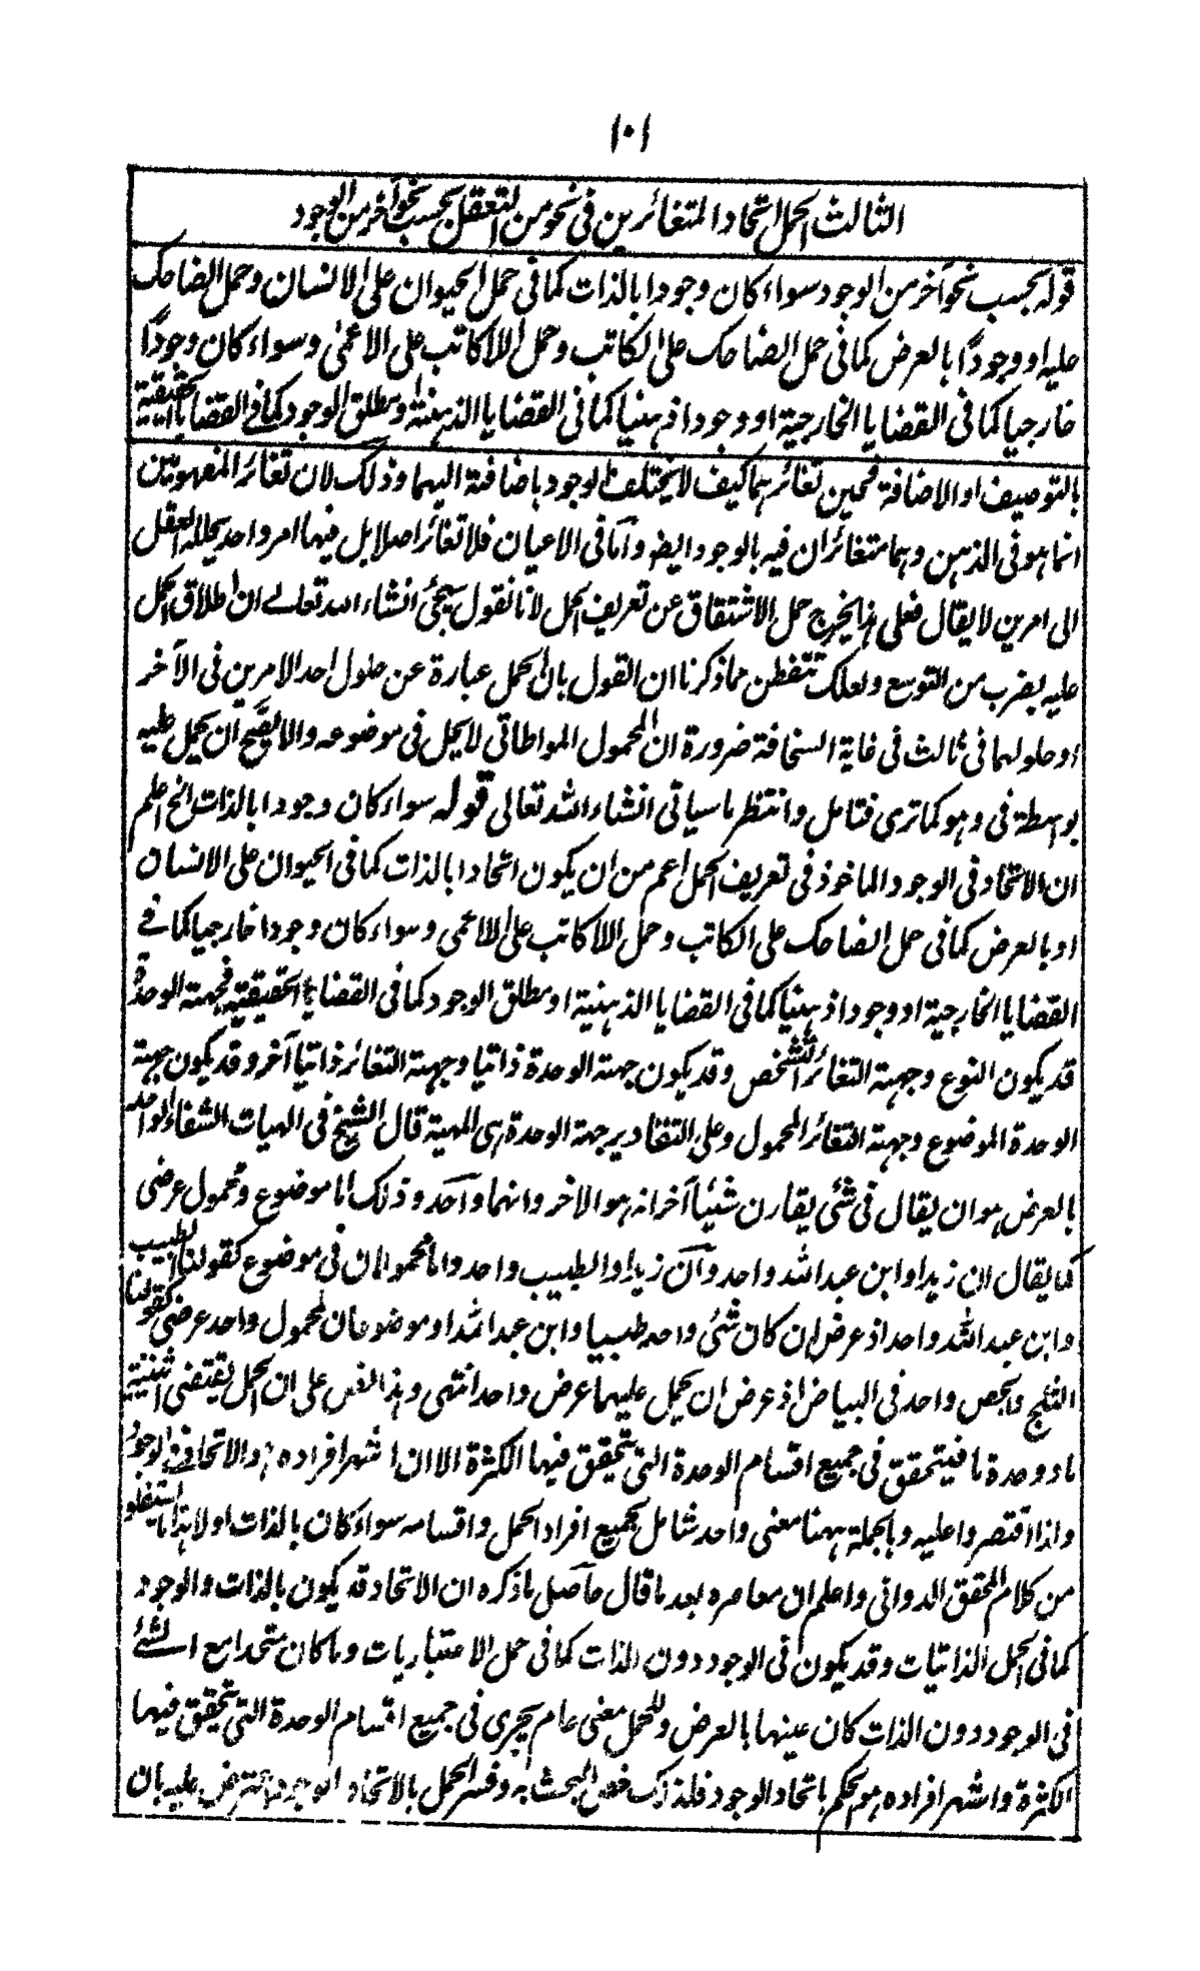 ١٠١
الثالث الحمل اتحاد المتغائرين فى نحو من التعقل بحسب نحو آخر من الوجود
قوله بحسب نحو آخر من الوجود سواء كان وجودا بالذات كما فى حمل الحيوان على الانسان وحمل الضاحك
عليه او وجودًا بالعرض كما فى حمل الضاحك على الكاتب وحمل اللاكاتب على الاعمىٰ وسواء كان وجودًا
خارجيا كما فى القضايا الخارجية او وجودا ذهنيا كما فى القضايا الذهنية او مطلق الوجود كما فى القضايا الحقيقية
بالتوصيف او الاضافة فحين تغائرهما كيف لا يختلف الوجود باضافته اليهما وذلك لان تغائر المفهومين
انما هو فى الذهن وهما متغائران فيه بالوجود ايضا وامّا فى الاعيان فلا تغائر اصلا بل فيها امر واحد يحلله العقل
الى امرين لا يقال فعلى هذا يخرج حمل الاشتقاق عن تعريف الحمل لانا نقول سيجئ انشاء الله تعالے ان اطلاق الحمل
عليه بضرب من التوسع ولعلك تتفطن مما ذكرنا ان القول بان الحمل عبارة عن حلول احد الامرين فى الآخر
او حلولهما فى ثالث فى غاية السخافة ضرورة ان المحمول المواطاتى لا يحل فى موضوعه والا لصح ان يحمل عليه
بواسطة فى وهو كما ترى فتامل وانتظر ما سياتى انشاء الله تعالى قوله سواء كان وجودا بالذات الخ اعلم
ان الاتحاد فى الوجود الماخوذ فى تعريف الحمل اعم من ان يكون اتحادا بالذات كما فى الحيوان على الانسان
او بالعرض كما فى حمل الضاحك على الكاتب وحمل اللاكاتب على الاعمى وسواء كان وجودا خارجيا كما فے
القضايا الخارجية او وجودا ذهنيا كما فى القضايا الذهنية او مطلق الوجود كما فى القضايا الحقيقية فجهة الوحدة
قد يكون النوع وجهة التغائر التشخص وقد يكون جهة الوحدة ذاتيا وجهة التغائر ذاتيا آخر وقد يكون جهة
الوحدة الموضوع وجهة التغائر المحمول وعلى التقادير جهة الوحدة هى المهية قال الشيخ فى الهيات الشفاء الواحد
بالعرض هو ان يقال فى شئ يقارن شيئا آخر انه هو الاخر وانهما واحد وذلك اما موضوع ومحمول عرضى
كما يقال ان زيدا وابن عبدالله واحد وان زيدا والطبيب واحد واما محمولان فى موضوع كقولنا الطبيب
وابن عبدالله واحد اذ عرض ان كان شئ واحد طبيبا وابن عبدالله او موضوعان لمحمول واحد عرضى كقولنا
الثلج والجص واحد فى البياض اذ عرض ان يحمل عليهما عرض واحد انتهى وهذا نص على ان الحمل يقتضى اثنينية
ما ووحدة ما فيتحقق فى جميع اقسام الوحدة التى يتحقق فيها الكثرة الا ان اشهر افراده هو الاتحاد فى الوجود
ولذا اقتصروا عليه وبالجملة ههنا معنى واحد شامل لجميع افراد الحمل واقسامه سواء كان بالذات او لا هذا ما يستفاد
من كلام المحقق الدوانى واعلم ان معاصره بعد ما قال حاصل ما ذكره ان الاتحاد قد يكون بالذات والوجود
كما فى الحمل الذاتيات وقد يكون فى الوجود دون الذات كما فى حمل الاعتباريات وما كان متحدا مع الشئے
فى الوجود دون الذات كان عينها بالعرض وللحمل معنى عام يجرى فى جميع اقسام الوحدة التى يتحقق فيها
الكثرة واشهر افراده هو الحكم باتحاد الوجود فلذلك خص البحث به وفسر الحمل بالاتحاد فى الوجود اعترض عليه بان